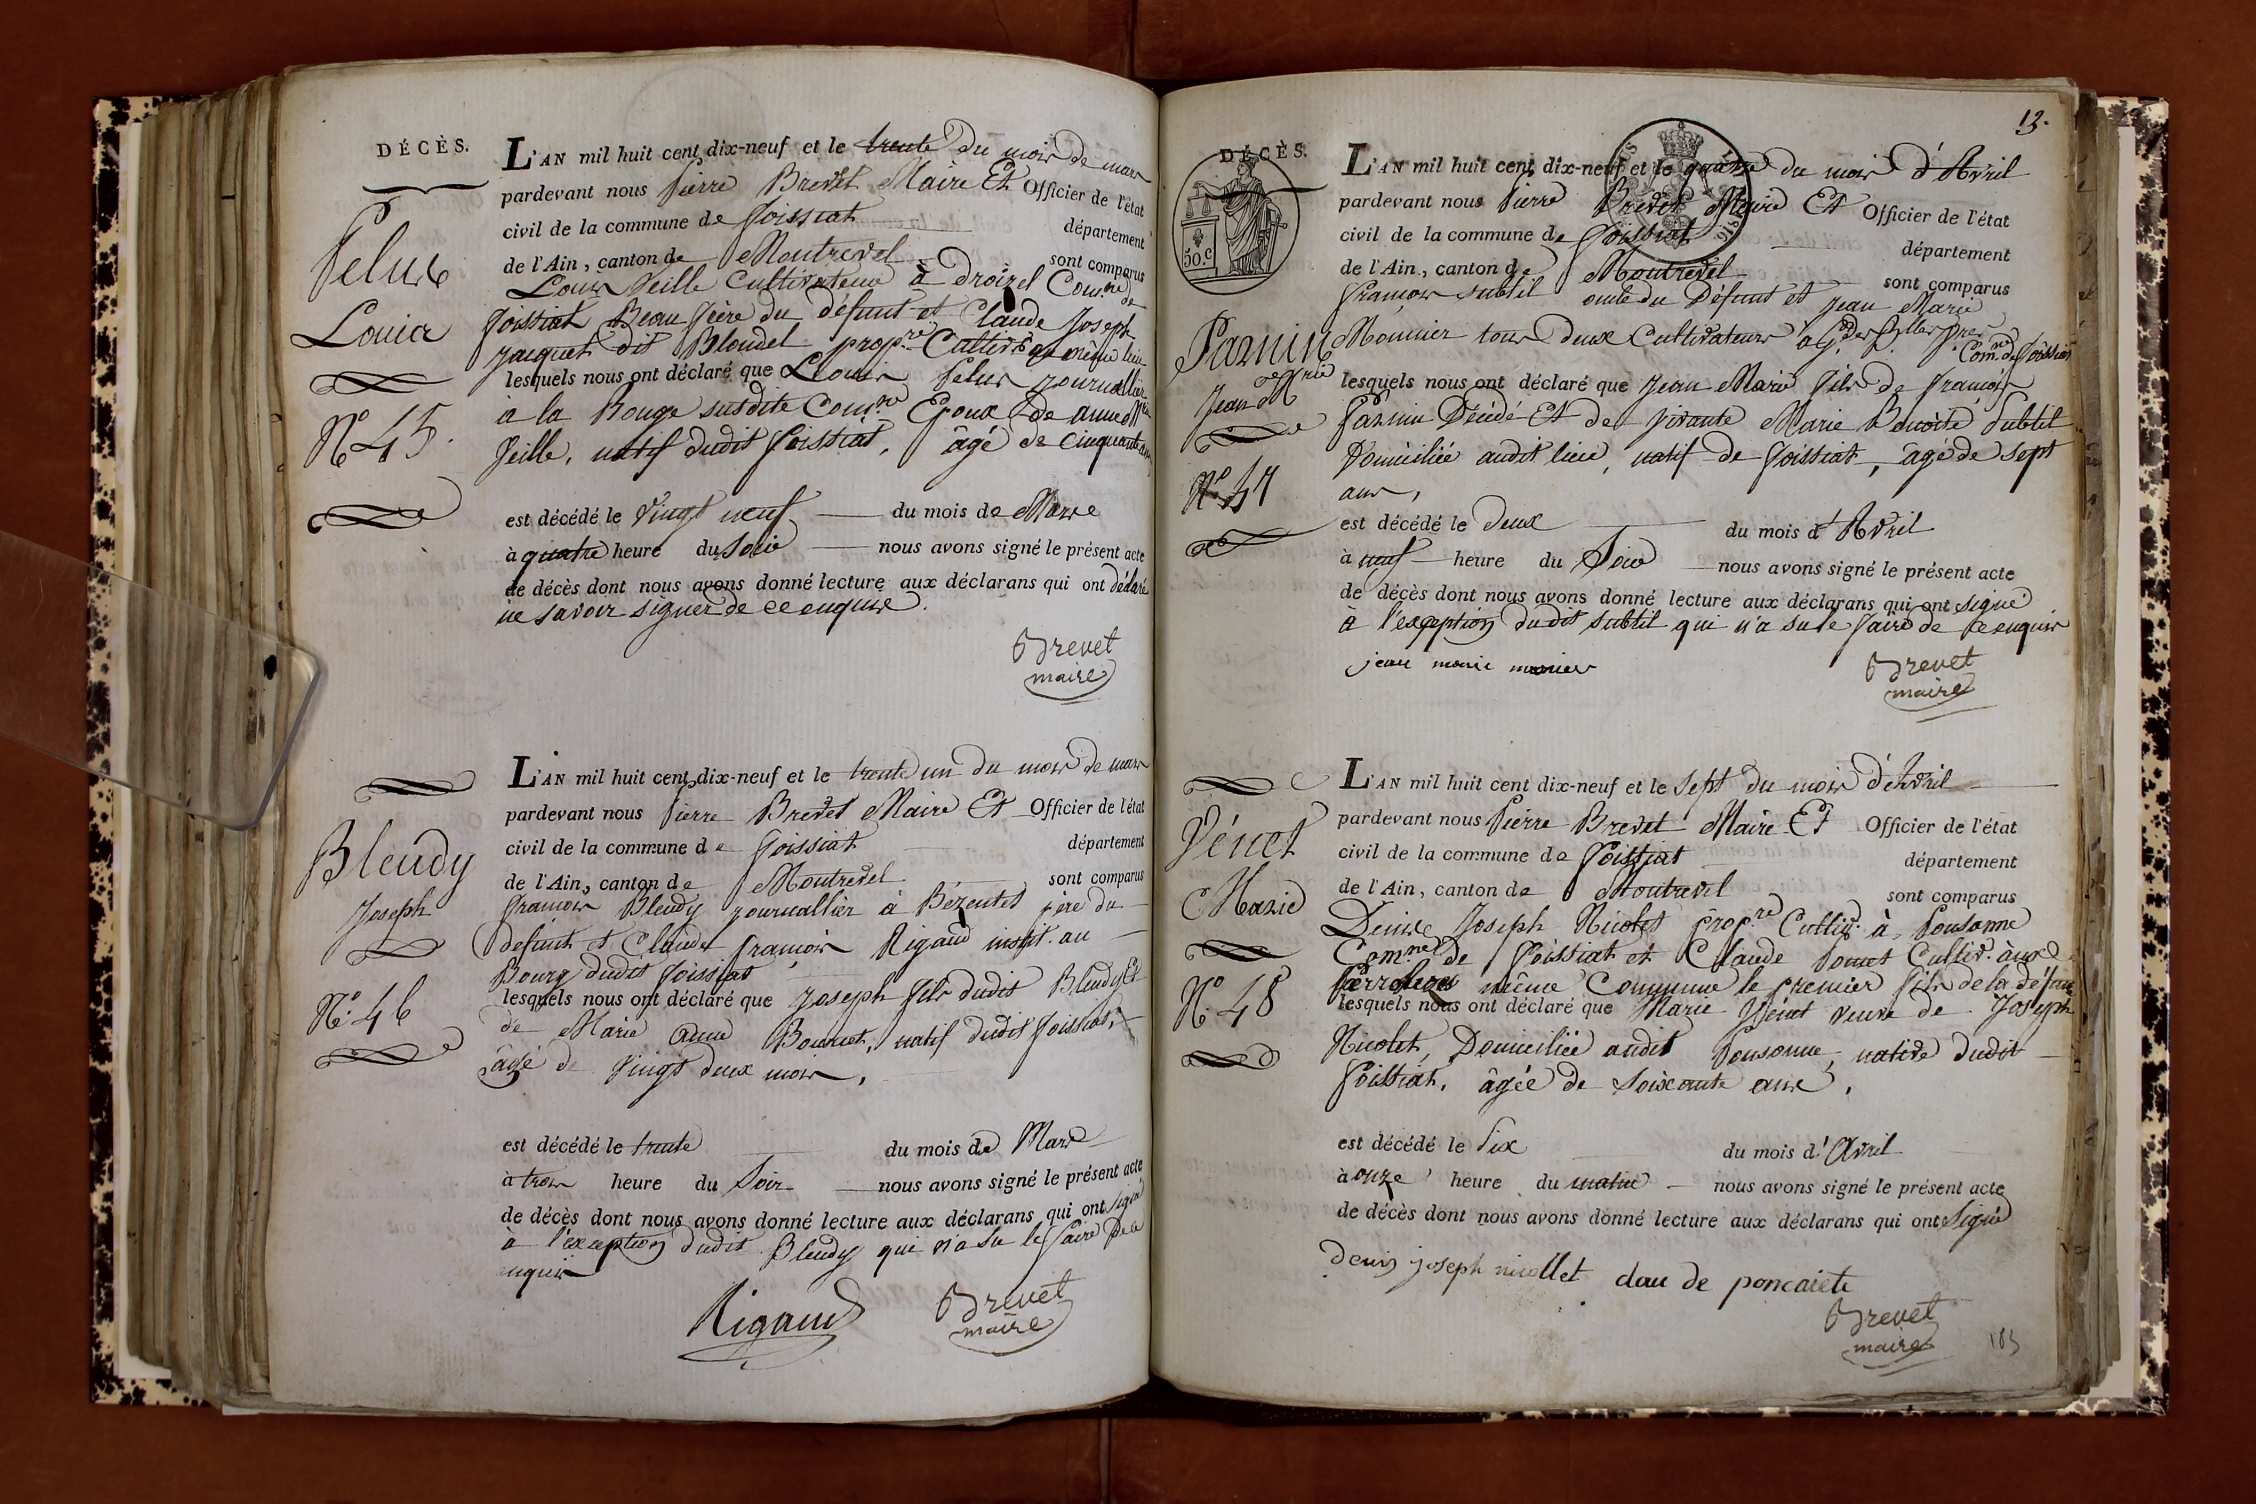 DÉCÈS.
Pelus
Louis
N.º 45.
L'AN mil huit cent dix-neuf et le trente du mois de mars
pardevant nous Pierre Brevet Maire Et Officier de l'état
civil de la commune de Foissiat département
de l'Ain, canton de Montrevel sont comparus
Louis Veille Cultivateur à Droisel Com.ne de
Foissiat Beau frère du défunt et Claude Joseph
Jacquet dit Blondel prop.re Cultiv.r au même lieu
lesquels nous ont déclaré que Louis Pelus journallier
à la Rouge susdite Com.ne Epoux de anne M.ie
Veille, natif dudit Foissiat, âgé de cinquante ans
est décédé le vingt neuf du mois de Mars
à quatre heure du soir nous avons signé le présent acte
de décès dont nous avons donné lecture aux déclarans qui ont déclaré
ne savoir signer de ce enquis.
Brevet
maire
Bleudy
Joseph
N.º 46
L'AN mil huit cent dix-neuf et le trente un du mois de mars
pardevant nous Pierre Brevet Maire Et Officier de l'état
civil de la commune de Foissiat département
de l'Ain, canton de Montrevel sont comparus
françois Bleudy journallier à Bézentet père du
defunt et Claude françois Rigaud instit. au
Bourg dudit Foissiat
lesquels nous ont déclaré que Joseph fils dudit Bleudy Et
de Marie Anne Bonnet, natif dudit Foissiat,
âgé de vingt deux mois,
est décédé le trente du mois de Mars
à trois heure du Soir nous avons signé le présent acte
de décès dont nous avons donné lecture aux déclarans qui ont signé
à l'exception dudit Bleudy qui n'a su le faire De ce
enquis
Rigaud
Brevet
maire
13.
DÉCÈS.
50.c
Parnin
Jean M.rie
N.º 47
L'AN mil huit cent dix-neuf et le quatre du mois d'Avril
pardevant nous Pierre Brevet Maire Et Officier de l'état
civil de la commune de Foissiat département
de l'Ain, canton de Montrevel sont comparus
françois subtil oncle du Défunt et Jean Marie
Monnier tous deux Cultivateurs à Com.ne de Foissiat
lesquels nous ont déclaré que Jean Marie fils de françois
Parnin Décédé Et de vivante Marie Benoite Subtil
Domiciliée audit lieu, natif de Foissiat, âgé de sept
ans,
est décédé le deux du mois d'Avril
à neuf heure du Soir nous avons signé le présent acte
de décès dont nous avons donné lecture aux déclarans qui ont signé
à l'exception dudit subtil qui n'a su le faire de ce enquis
jean marie monier
Brevet
maire
Vénet
Marie
N.º 48
L'AN mil huit cent dix-neuf et le sept du mois d'Avril
pardevant nous Pierre Brevet Maire Et Officier de l'état
civil de la commune de Foissiat département
de l'Ain, canton de Montrevel sont comparus
Denis Joseph Nicolet Prop.re Cultiv.r à Ponsonne
Com.ne de Foissiat et Claude Poncet Cultiv.r aux
même Commune le premier fils de la défunte
lesquels nous ont déclaré que Marie Vénet veuve de Joseph
Nicolet, Domiciliée audit Ponsonne, native dudit
Foissiat, âgée de soixante ans,
est décédé le Six du mois d'Avril
à onze heure du matin nous avons signé le présent acte
de décès dont nous avons donné lecture aux déclarans qui ont Signé
denis joseph nicollet
Brevet
maire
183